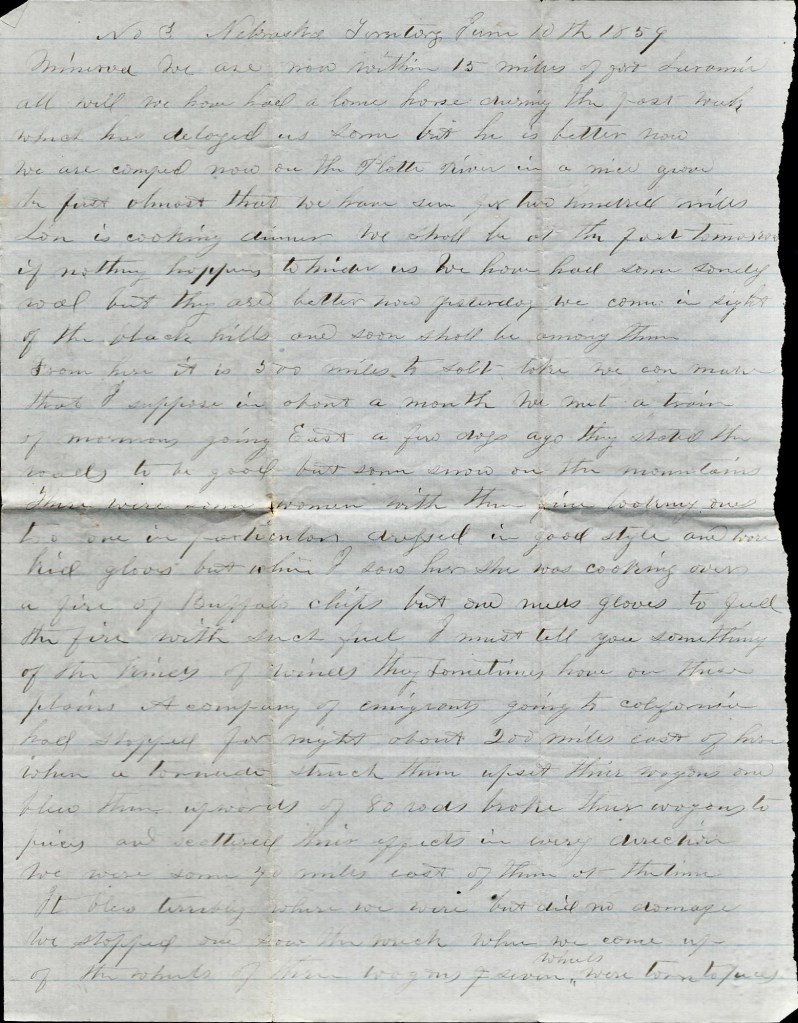 No 3 Nebraska Territory June 10th 1859
Minerva We are now within 15 miles of fort Laramie
all well we have had a lame horse during the past week
which has delayed us some but he is better now
We are camped now on the Platte river in a nice grove
the first almost that we have seen for two hundred miles
Lon is cooking dinner We shall be at the fort tomorrow
if nothing happens to hinder us We have had some sandy
road but they are better now yesterday we come in sight
of the black hills and soon shall be among them
From here it is 500 miles to salt lake we can make
that I suppose in about a month We met a train
of mormons going East a few days ago they stated the
roads to be good but some snow on the mountains
There were some women with them fine looking ones
too one in particular dressed in good style and wore
kid gloves but when I saw her she was cooking over
a fire of Buffalo chips but one needs gloves to feed
the fire with such fuel I must tell you something
of the kinds of winds they sometimes have on these
plains A company of emigrants going to california
had stopped for night about 200 miles east of here
when a tornado struck them upset their wagons and
blew them upwards of 80 rods broke their wagons to
pieces and scattered their effects in every direction
We were some 40 miles east of them at the time
It blew terribly where we were but did no damage
We stopped and saw the wreck when we come up
of the wheels of three wagons seven wheels were torn to pieces